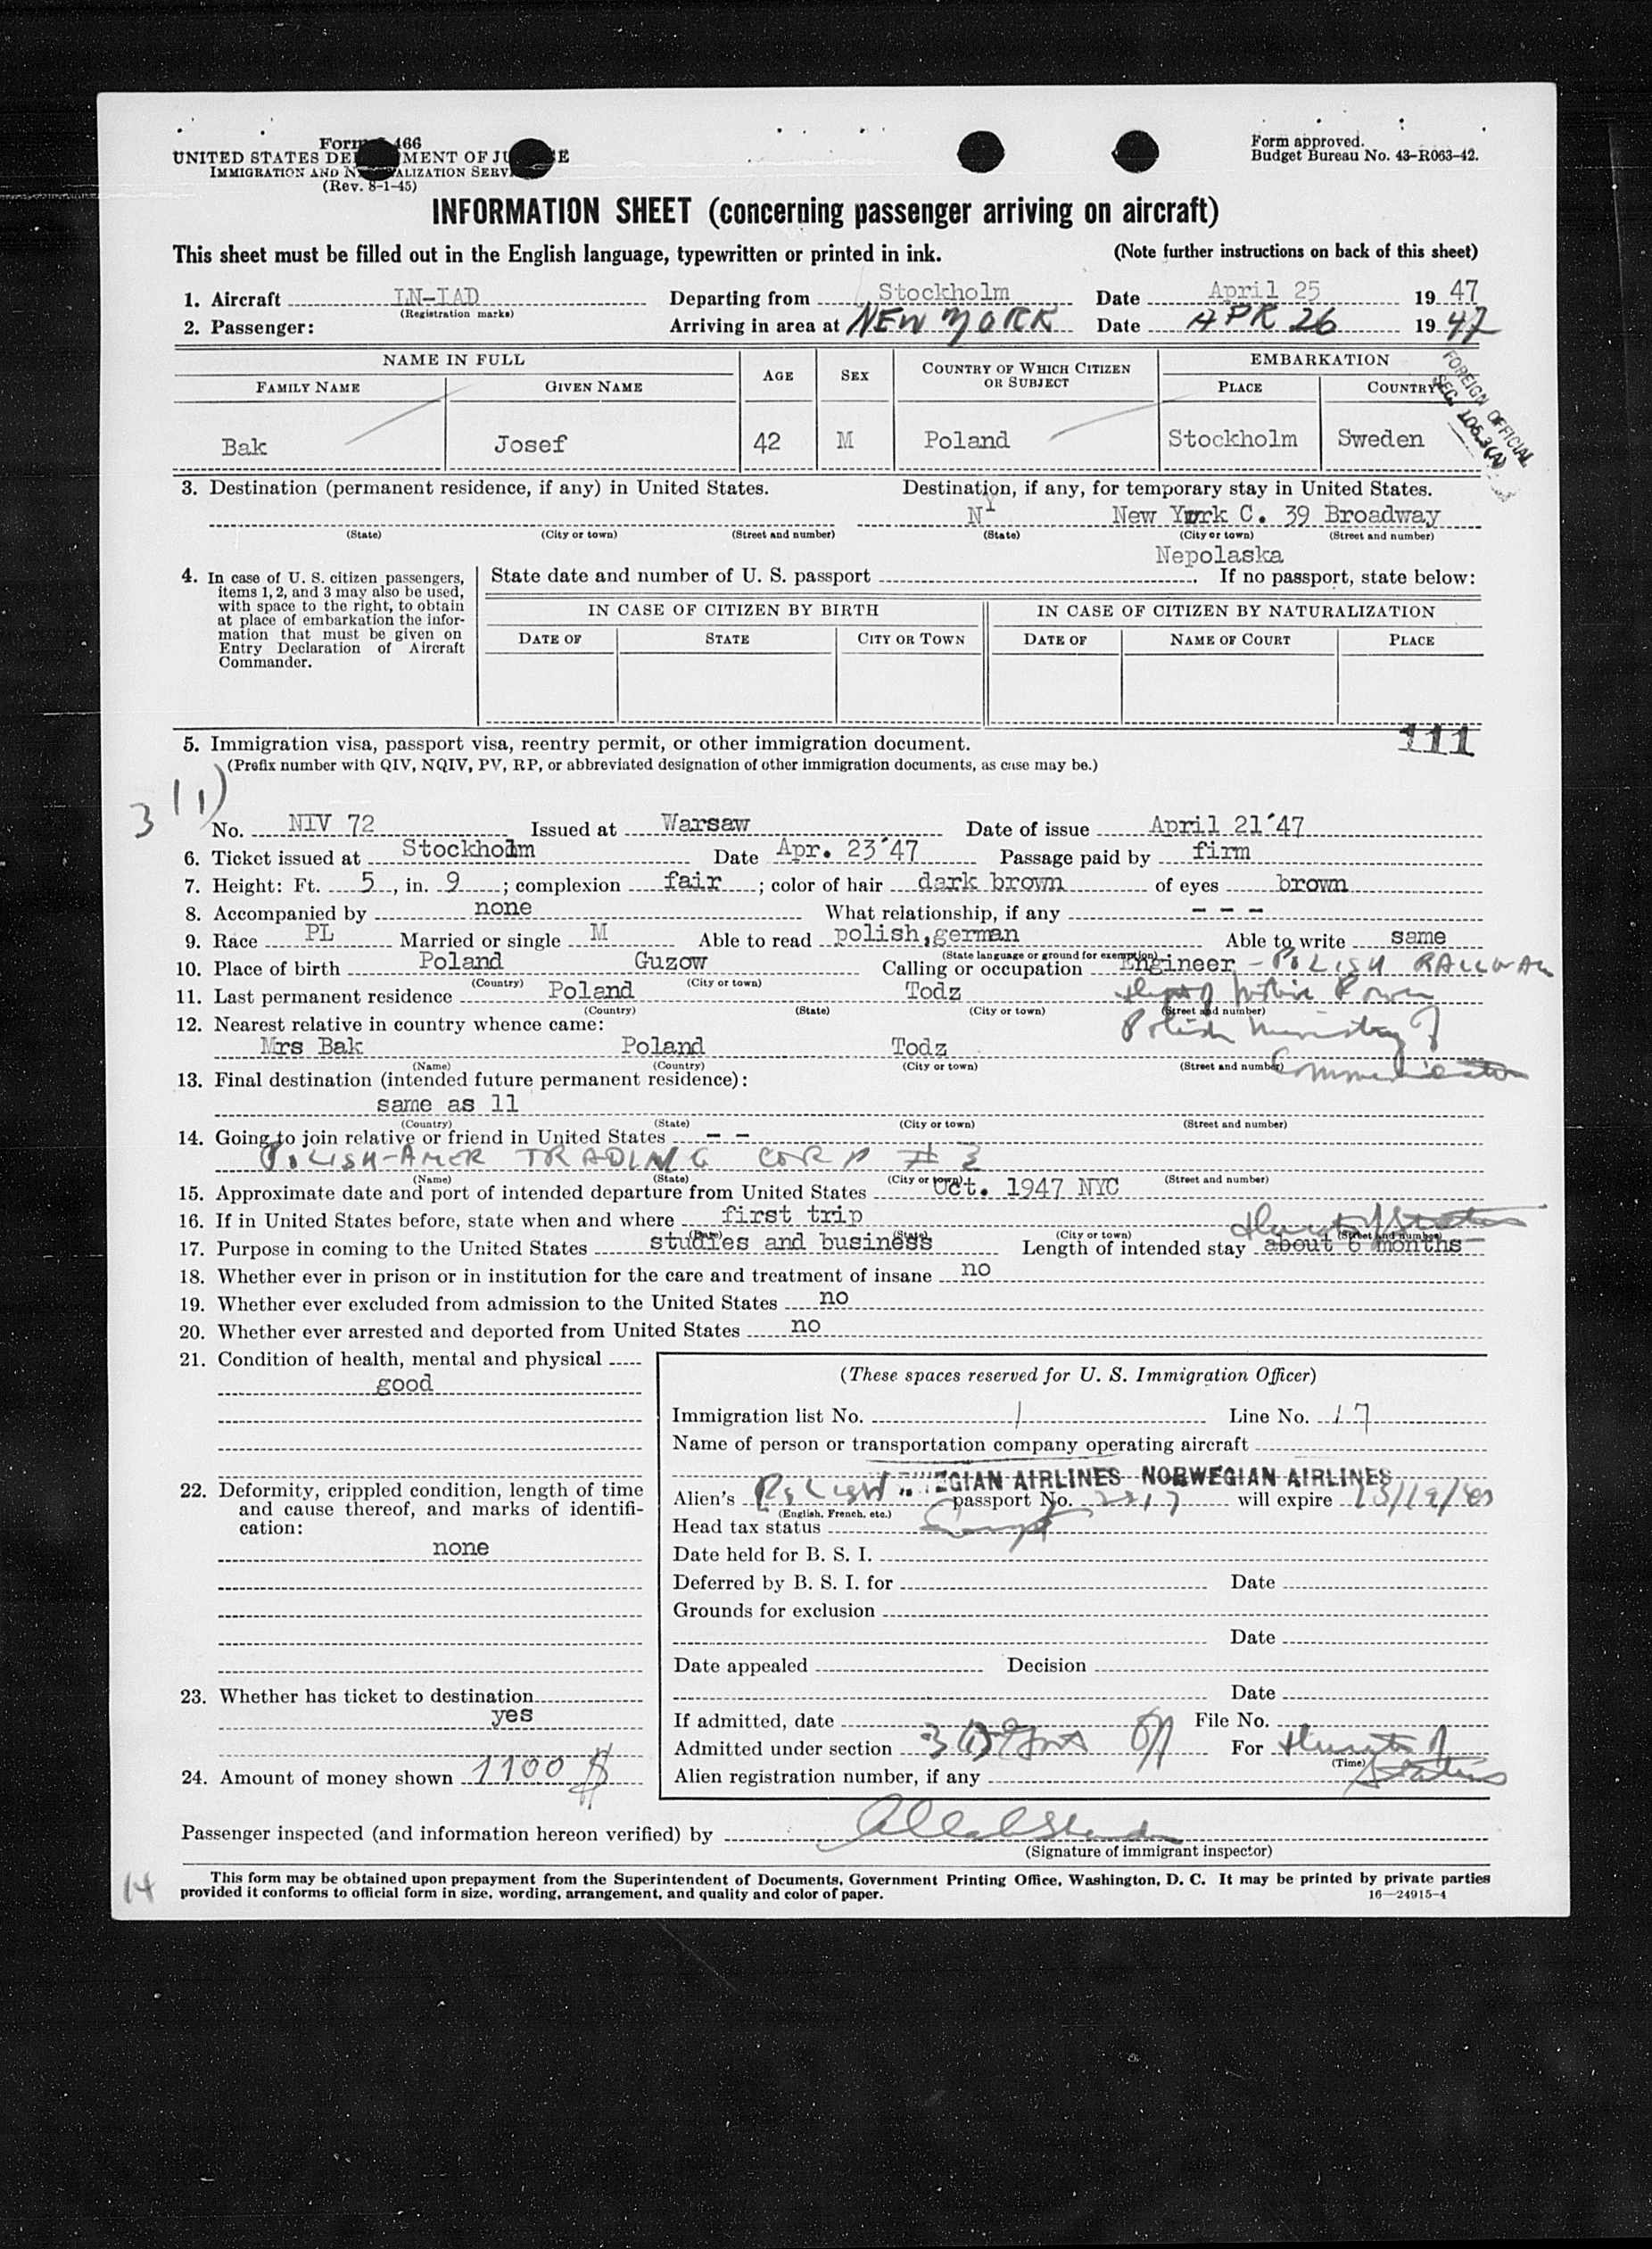 Form 466
UNITED STATES DEPARTMENT OF JUSTICE
IMMIGRATION AND NATURALIZATION SERVICE
(Rev. 8-1-45)
Form approved.
Budget Bureau No. 43-R063-42.
INFORMATION SHEET (concerning passenger arriving on aircraft)
This sheet must be filled out in the English language, typewritten or printed in ink. (Note further instructions on back of this sheet)
1. Aircraft LN-IAD Departing from Stockholm Date April 25 1947
(Registration marks)
2. Passenger: Arriving in area at NEW YORK Date APR 26 1947
FOREIGN OFFICIAL
SEC. 105.3(A)
NAME IN FULL AGE SEX COUNTRY OF WHICH CITIZEN OR SUBJECT EMBARKATION
FAMILY NAME GIVEN NAME PLACE COUNTRY
Bak Josef 42 M Poland Stockholm Sweden
3. Destination (permanent residence, if any) in United States. Destination, if any, for temporary stay in United States.
NY New York C. 39 Broadway
(State) (City or town) (Street and number) (State) (City or town) (Street and number)
Nepolaska
4. In case of U. S. citizen passengers, items 1, 2, and 3 may also be used, with space to the right, to obtain at place of embarkation the information that must be given on Entry Declaration of Aircraft Commander.
State date and number of U. S. passport . If no passport, state below:
IN CASE OF CITIZEN BY BIRTH IN CASE OF CITIZEN BY NATURALIZATION
DATE OF STATE CITY OR TOWN DATE OF NAME OF COURT PLACE
111
5. Immigration visa, passport visa, reentry permit, or other immigration document.
(Prefix number with QIV, NQIV, PV, RP, or abbreviated designation of other immigration documents, as case may be.)
3 (1)
No. NIV 72 Issued at Warsaw Date of issue April 21'47
6. Ticket issued at Stockholm Date Apr. 23'47 Passage paid by firm
7. Height: Ft. 5, in. 9; complexion fair; color of hair dark brown of eyes brown
8. Accompanied by none What relationship, if any - - -
9. Race PL Married or single M Able to read polish,german Able to write same
(State language or ground for exemption)
10. Place of birth Poland Guzow Calling or occupation Engineer - POLISH RAILWAY
(Country) (City or town)
11. Last permanent residence Poland Todz Dept of Motive Power
(Country) (State) (City or town) (Street and number)
12. Nearest relative in country whence came: Polish Ministry of
Mrs Bak Poland Todz Communication
(Name) (Country) (City or town) (Street and number)
13. Final destination (intended future permanent residence):
same as 11
(Country) (State) (City or town) (Street and number)
14. Going to join relative or friend in United States - -
POLISH-AMER TRADING CORP # 3
(Name) (State) (City or town) (Street and number)
15. Approximate date and port of intended departure from United States Oct. 1947 NYC
16. If in United States before, state when and where first trip
(Date) (State) (City or town) (Street and number)
17. Purpose in coming to the United States studies and business Length of intended stay about 6 months
18. Whether ever in prison or in institution for the care and treatment of insane no
19. Whether ever excluded from admission to the United States no
20. Whether ever arrested and deported from United States no
21. Condition of health, mental and physical
good
22. Deformity, crippled condition, length of time and cause thereof, and marks of identification:
none
23. Whether has ticket to destination
yes
24. Amount of money shown 1100 $
(These spaces reserved for U. S. Immigration Officer)
Immigration list No. 1 Line No. 17
Name of person or transportation company operating aircraft
NORWEGIAN AIRLINES NORWEGIAN AIRLINES
Alien's Polish passport No. will expire
(English, French, etc.)
Head tax status
Date held for B. S. I.
Deferred by B. S. I. for Date
Grounds for exclusion
Date
Date appealed Decision
Date
If admitted, date File No.
Admitted under section 3 (1) For Duration of Status
(Time)
Alien registration number, if any
Passenger inspected (and information hereon verified) by
(Signature of immigrant inspector)
14
This form may be obtained upon prepayment from the Superintendent of Documents, Government Printing Office, Washington, D. C. It may be printed by private parties
provided it conforms to official form in size, wording, arrangement, and quality and color of paper. 16—24915-4